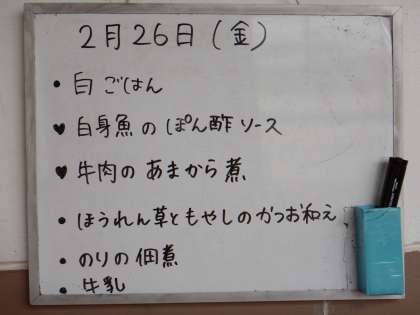 2月26日(金)
• 白ごはん
♥ 白身魚のぽん酢ソース
♥ 牛肉のあまから煮
• ほうれん草ともやしのかつお和え
• のりの佃煮
• 牛乳